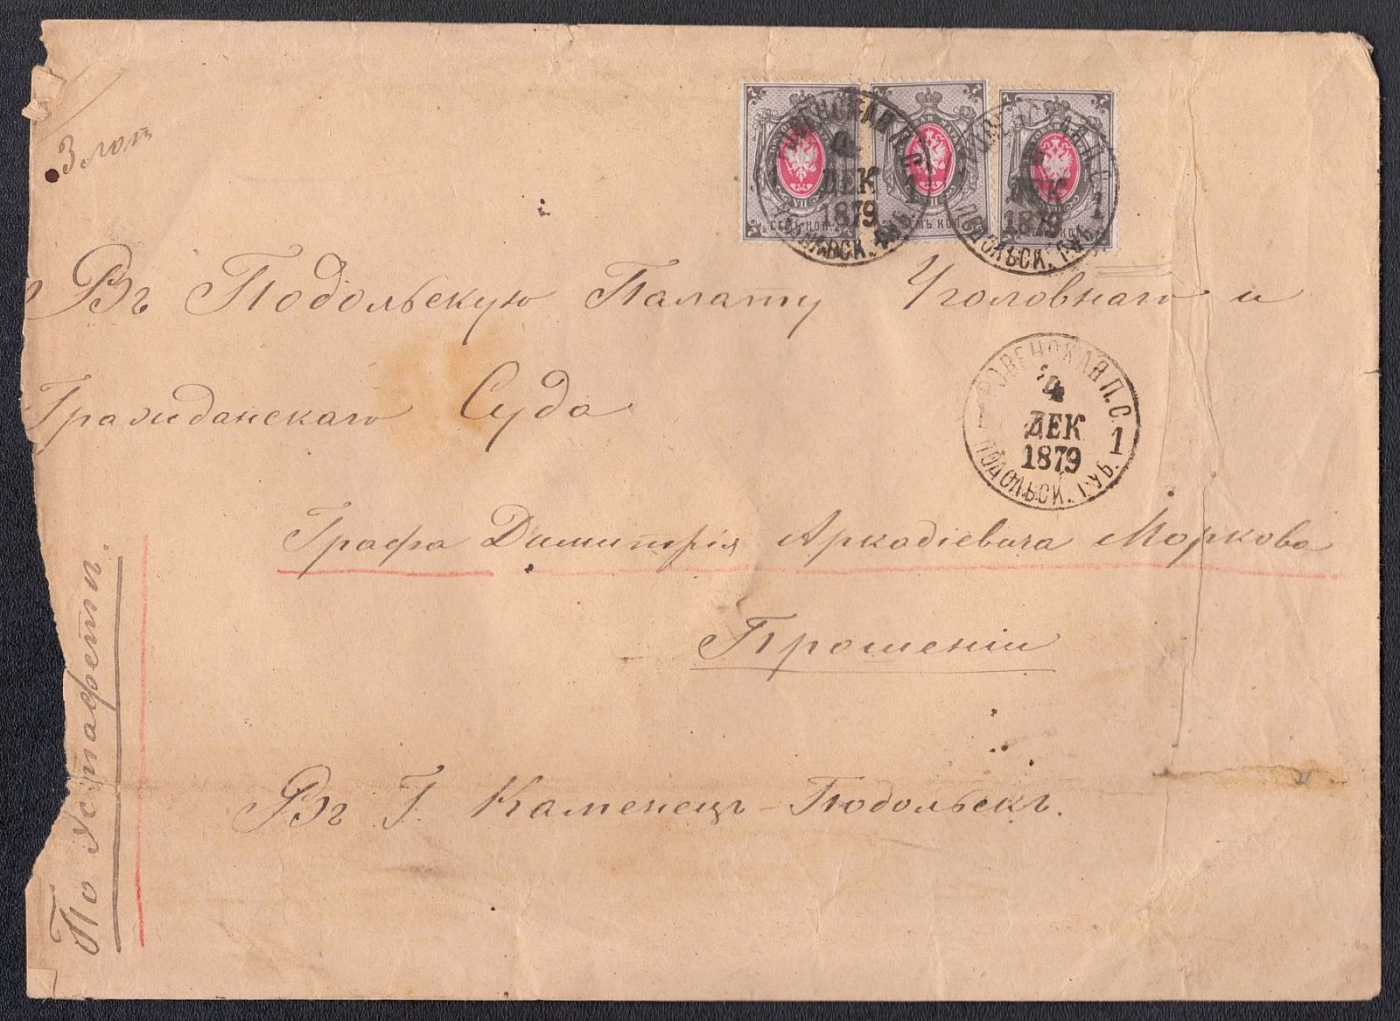 3 лот
Въ Подольскую Палату Уголовнаго и
Гражданскаго Суда
Графа Димитрія Аркадіевича Моркова
Прошеніи
Въ Г. Каменецъ-Подольскъ.
По Эстафетѣ.
РОВЕНСКАЯ П. С.
4
ДЕК
1879
1
ПОДОЛЬСК. ГУБ.
4
ДЕК
1879
1
ПОДОЛЬСК. ГУБ.
ДЕК
1879
1
ПОДОЛЬСК. ГУБ.
СЕМЬ КОП